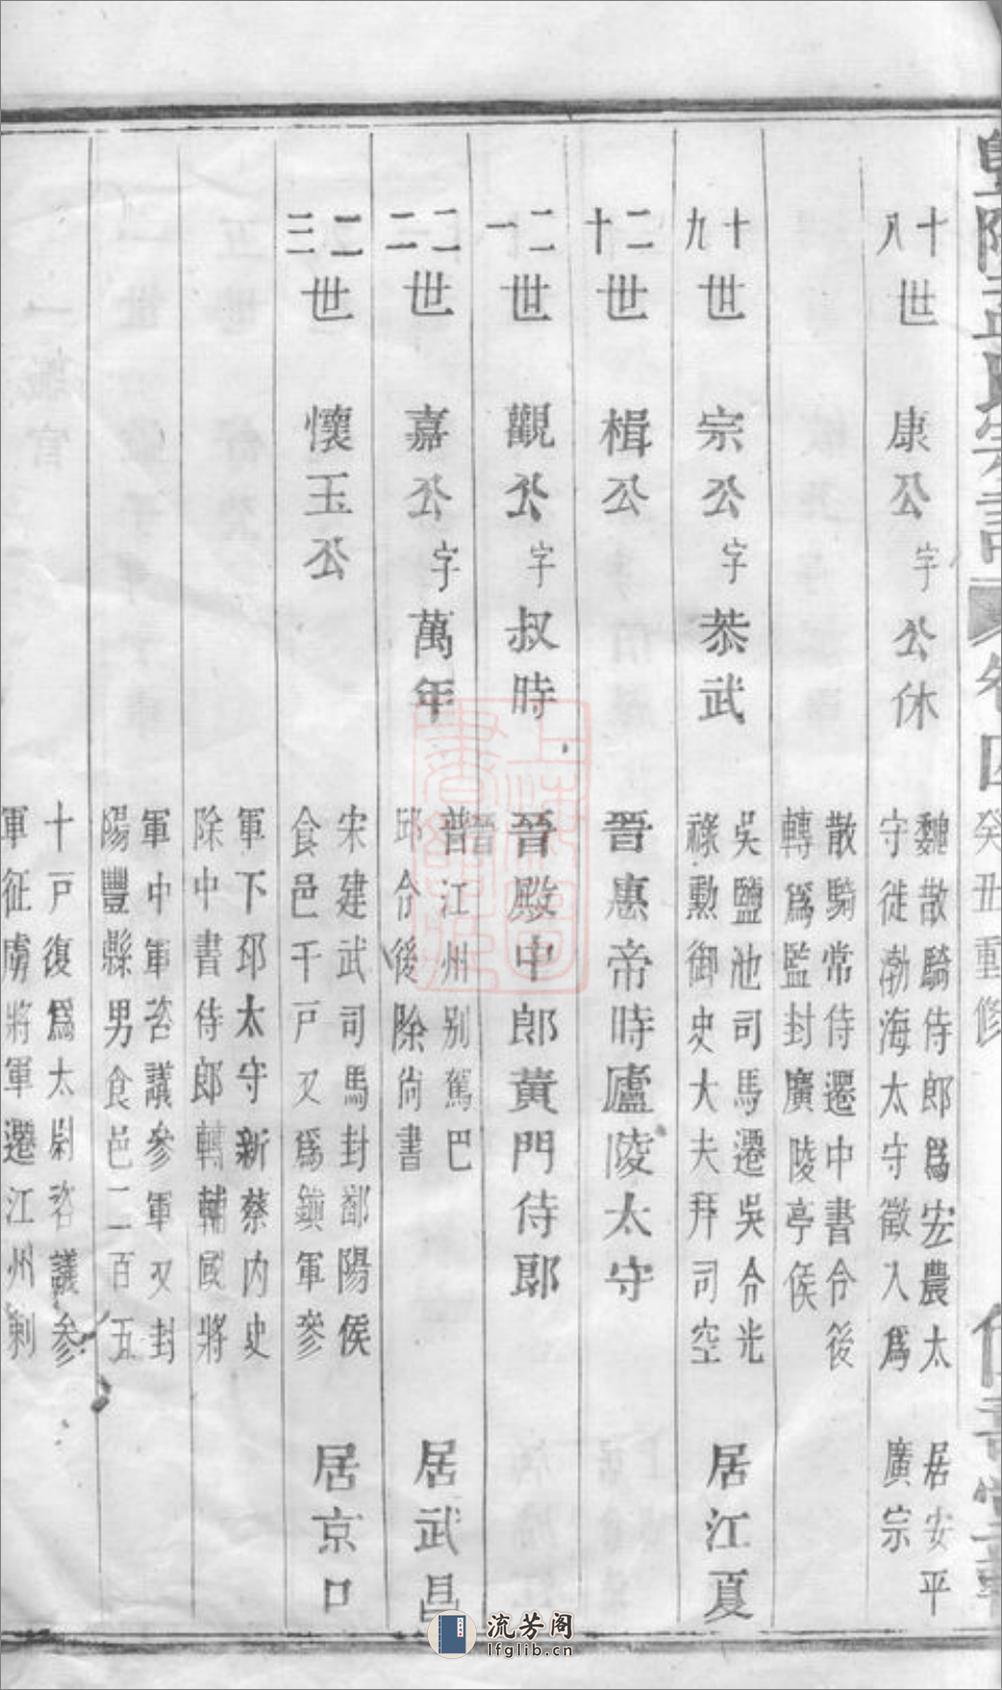 卷四 癸丑重修
十八世 康公 字公休 魏散騎侍郎爲宏農太守徙渤海太守徵入爲 居安平廣宗
散騎常侍遷中書令後轉爲監封廣陵亭侯
十九世 宗公 字恭武 吳鹽池司馬遷吳令光祿勳御史大夫拜司空 居江夏
二十世 楫公 晉惠帝時廬陵太守
二一世 觀公 字叔時 晉殿中郎黃門侍郎
二二世 嘉公 字萬年 晉江州别駕巴邱令後除尚書 居武昌
二三世 懷玉公 宋建武司馬封鄱陽侯食邑千戸又爲鎭軍參 居京口
軍下邳太守新蔡內史除中書侍郎轉輔國將
軍中軍咨議參軍又封陽豐縣男食邑二百五
十戸復爲太尉咨議參軍征虜將軍遷江州刺
上海圖書館藏
流芳阁
lfglib.cn